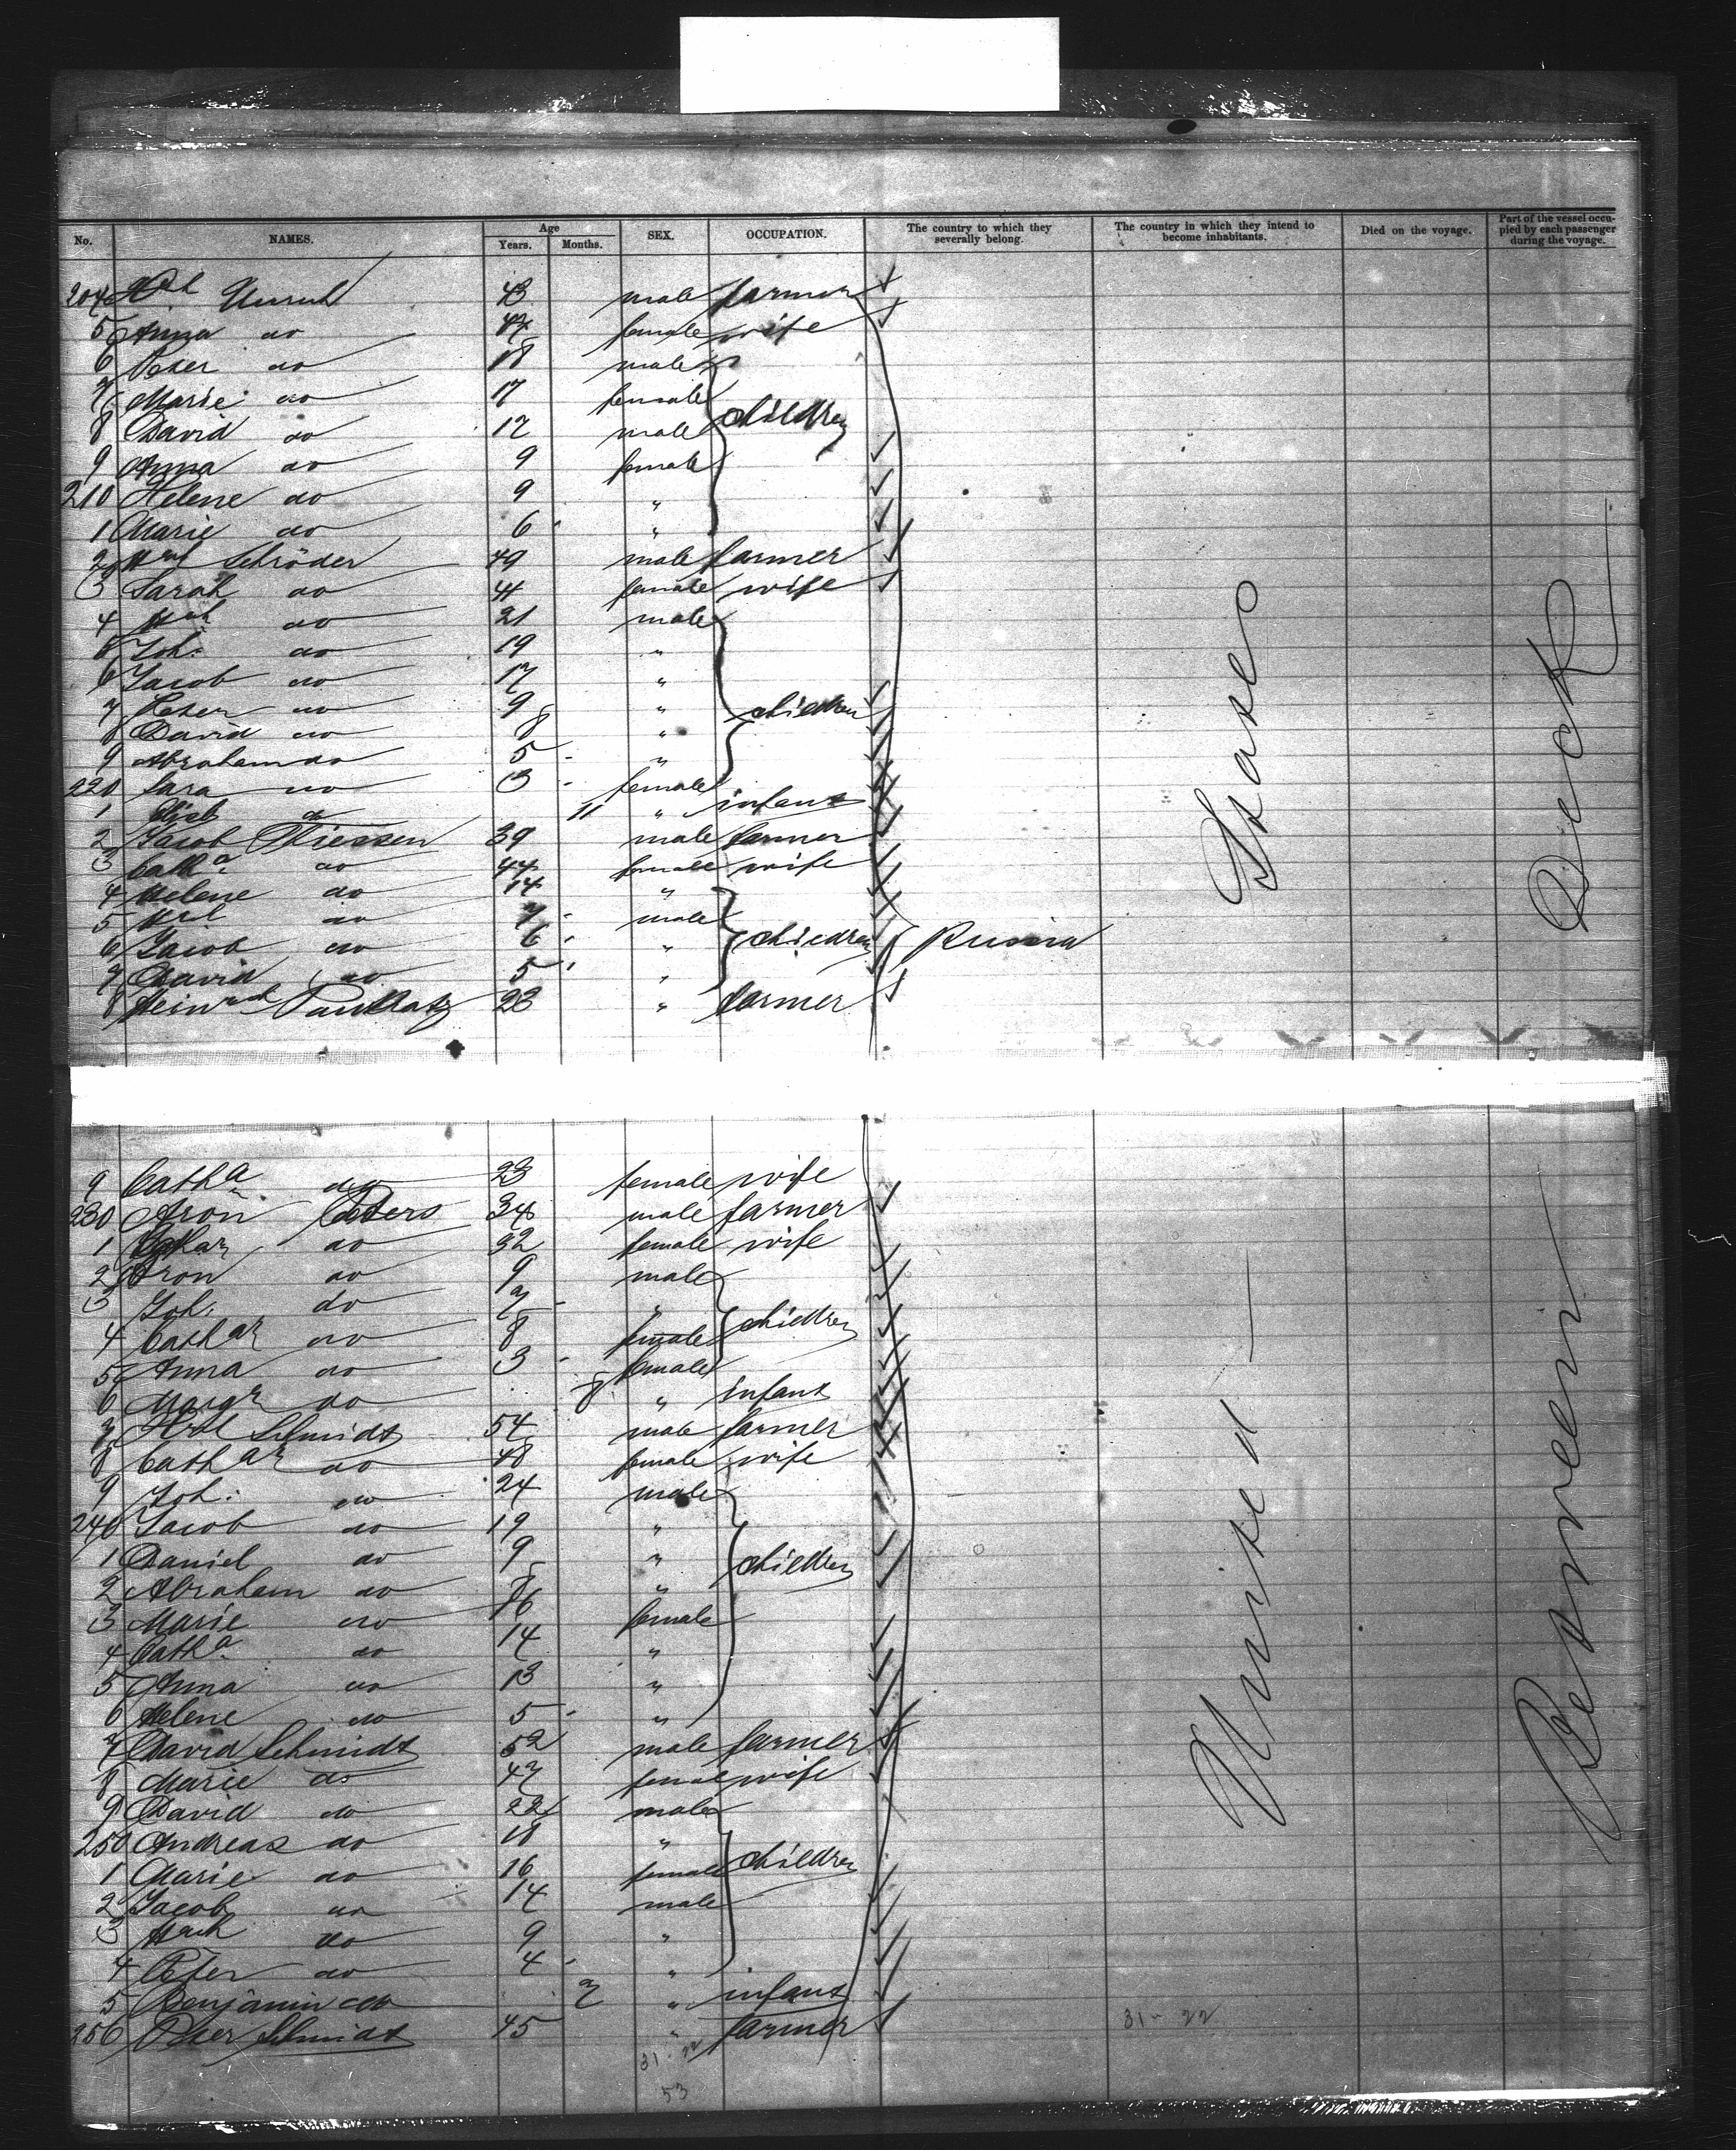 No. NAMES. Age Years. Months. SEX. OCCUPATION. The country to which they severally belong. The country in which they intend to become inhabitants. Died on the voyage. Part of the vessel occupied by each passenger during the voyage.
204 Hch Unruh 43 male farmer
5 Anna do 42 female wife
6 Peter do 18 male
7 Marie do 17 female
8 David do 12 male children
9 Anna do 9 female
210 Helene do 9 "
1 Marie do 6 "
2 Hch Schröder 49 male farmer
3 Sarah do 44 female wife
4 Hch do 21 male
5 Joh: do 19 "
6 Jacob do 17 "
7 Peter do 9 " children
8 David do 8 "
9 Abraham do 5 "
220 Sara do 3 female
1 Elisb do 11 " infant
2 Jacob Thiessen 39 male farmer
3 Catha do 44 female wife
4 Helene do 14 "
5 do 7 male
6 Jacob do 6 " children Russia
7 David do 5 "
8 Heinrich 23 " farmer
9 Catha do 23 female wife
230 Aron Peters 34 male farmer
1 Cathar do 32 female wife
2 Aron do 9 male
3 Joh: do 7 "
4 Cathar do 8 female children
5 Anna do 3 female
6 Margr do 8 " infant
7 Schmidt 54 male farmer
8 Cathar do 48 female wife
9 Joh: do 24 male
240 Jacob do 19 "
1 Daniel do 9 " children
2 Abraham do 8 "
3 Marie do 16 female
4 Catha do 14 "
5 Anna do 13 "
6 Helene do 5 "
7 David Schmidt 52 male farmer
8 Marie do 47 female wife
9 David do 22 male
250 Andreas do 18 "
1 Marie do 16 female children
2 Jacob do 14 male
3 Hch do 9 "
4 Peter do 4 "
5 Benjamin do " infant
256 Peter Schmidt 45 " farmer
United States
Between Deck
31-22
31-22
53